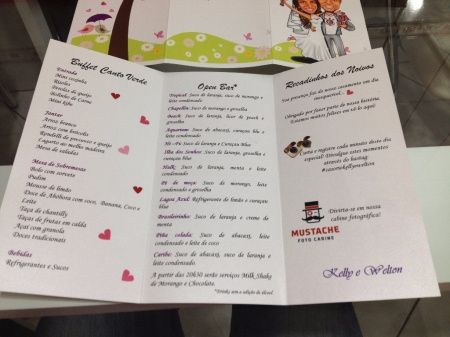 Buffet Canto Verde
Entrada
Mini coxinha
Risoles
Bolinho de Carne
Mini kibe
Jantar
Arroz branco
Arroz com brócolis
Rondelli de presunto e queijo
Lagarto ao molho madeira
Mesa de saladas
Mesa de Sobremesa
Bolo com sorvete
Pudim
Mousse de limão
Doce de Abóbora com coco, Banana, Coco e
Leite
Taça de chantilly
Taças de frutas em calda
Açaí com granola
Doces tradicionais
Bebidas
Refrigerantes e Sucos
Open Bar*
Tropical: Suco de laranja, suco de morango e
leite condensado
Chapelin: Suco de laranja, suco de
morango e groselha
Beach: Suco de laranja, licor de pessi e
groselha
Aquarius: Suco de abacaxi, curaçau blue e
leite condensado
Hi-Fi: Suco de laranja e Curaçau Blue
Ilha dos Sonhos: Suco de laranja, groselha e
curaçau blue
Hulk: Suco de laranja, menta e leite
condensado
Pi de moça: Suco de morango, leite
condensado e groselha
Lagoa Azul: Refrigerante de limão e curaçau
blue
Brasileirinho: Suco de laranja e creme de
menta
Piña colada: Suco de abacaxi, leite
condensado e leite de coco
Caribe: Suco de abacaxi, suco de laranja e
leite condensado
A partir das 20h30 serão serviços Milk Shake
de Morango e Chocolate.
*Drinks sem a adição de álcool.
Recadinhos dos Noivos
Sua presença fez do nosso casamento um dia
inesquecível.
Obrigado por fazer parte de nossa história.
Estamos muito felizes em tê-lo aqui!
Curta e registre cada minuto desse dia
especial! Divulgue estes momentos
através da hastag:
#casamentokellyewelton
Divirta-se em nossa
cabine fotográfica!
MUSTACHE
FOTO CABINE
Kelly e Welton